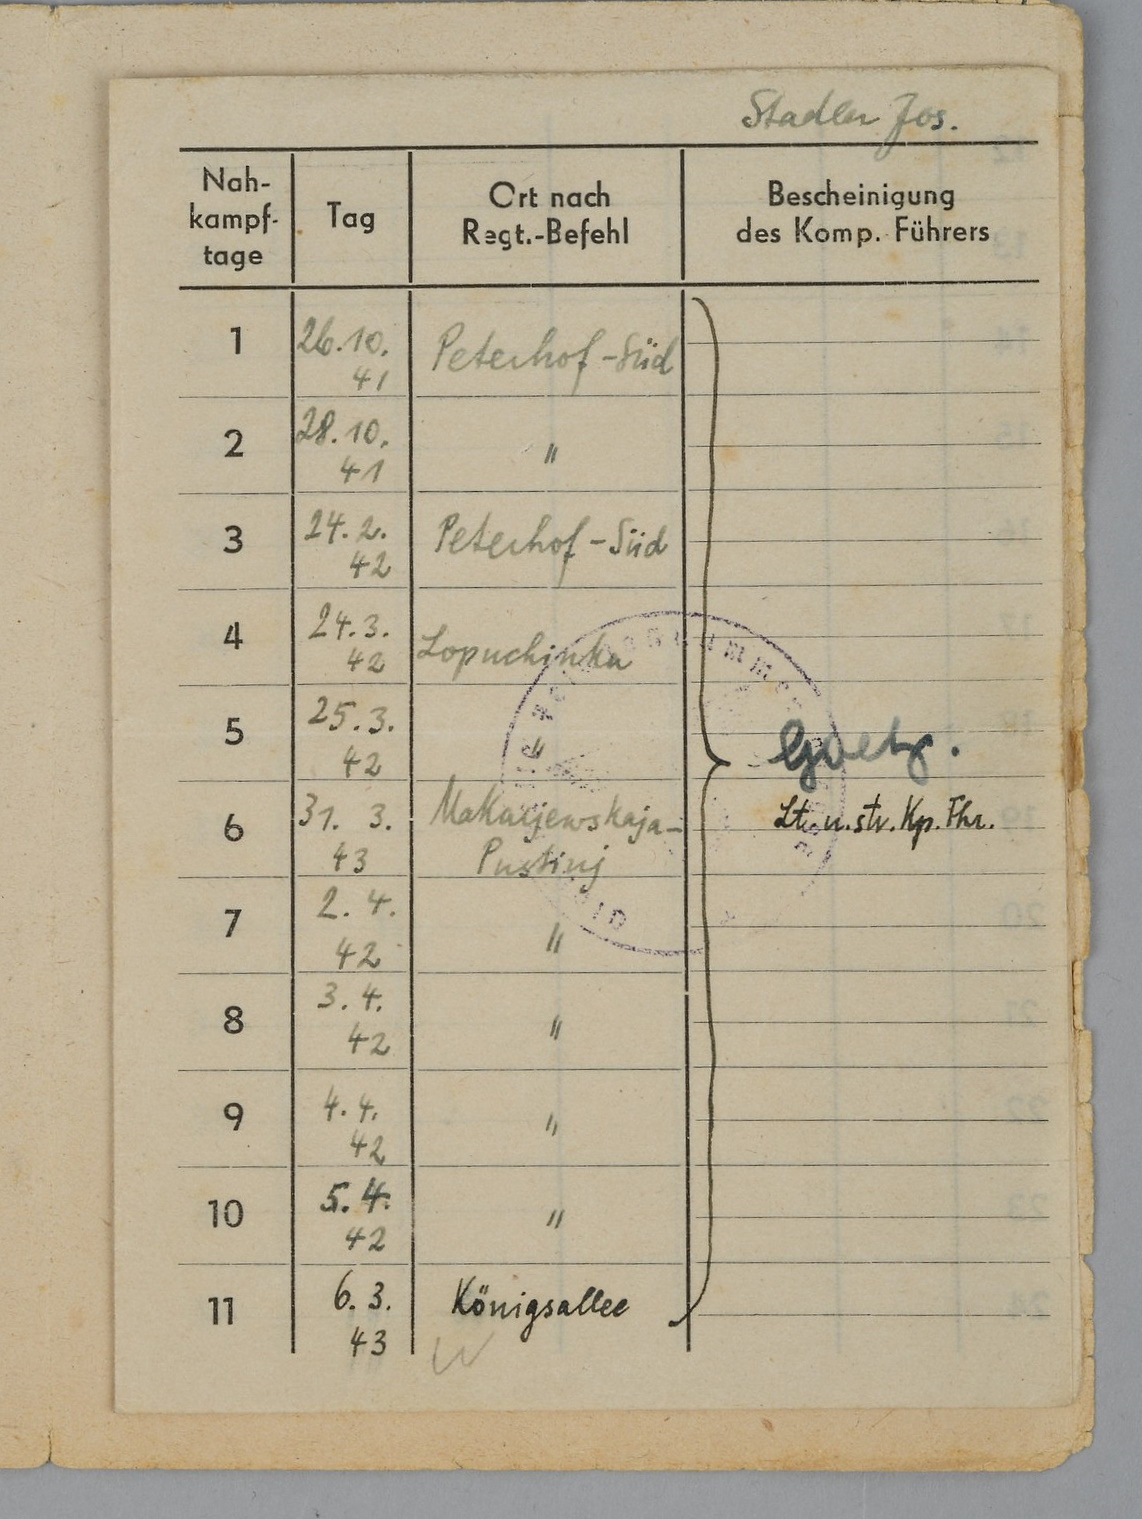 Stadler Jos.
Nah-
kampf-
tage
Tag
Ort nach
Regt.-Befehl
Bescheinigung
des Komp. Führers
1 26.10. Peterhof-Süd
41
2 28.10. "
41
3 24.2. Peterhof-Süd
42
4 24.3. Lopuchinka
42
5 25.3. "
42
6 31. 3. Makarjewskaja-
43 Pustinj
7 2. 4. "
42
8 3. 4. "
42
9 4. 4. "
42
10 5. 4. "
42
11 6. 3. Königsallee
43
Goetz.
Lt. u. stv. Kp. Fhr.